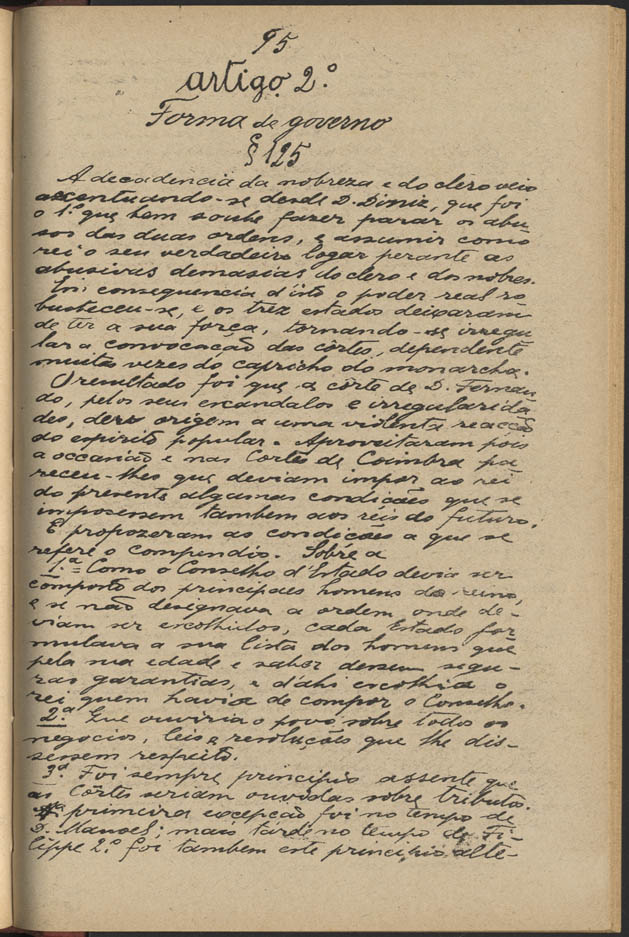 95
artigo 2.º
Forma de governo
§ 125
A decadencia da nobreza e do clero veio
accentuando-se desde D. Diniz, que foi
o 1.º que bem soube fazer parar os abu-
sos das duas ordens, e assumir como
rei o seu verdadeiro logar perante as
abusivas demasias do clero e dos nobres.
Em consequencia d'isto o poder real ro-
busteceu-se, e os trez estados deixaram
de ter a sua força, tornando-se irregu-
lar a convocação das côrtes, dependente
muitas vezes do capricho do monarcha.
O resultado foi que a côrte de D. Fernan-
do, pelos seus escandalos e irregularida-
des, dera origem a uma violenta reacção
do espirito popular. Aproveitaram pois
a occasião e nas Cortes de Coimbra pa-
receu-lhes que deviam impor ao rei
do presente algumas condições que se
impozessem tambem aos reis do futuro.
E propozeram as condições a que se
refere o compendio. Sobre a
1.ª = Como o Conselho d'Estado devia ser
composto dos principaes homens do reino,
e se não designava a ordem onde de-
viam ser escolhidos, cada Estado for-
mulava a sua lista dos homens que
pela sua edade e saber dessem segu-
ras garantias, e d'ahi escolhia o
rei quem havia de compor o Conselho.
2.ª Que ouviria o povo sobre todos os
negocios, leis e resoluções que lhe dis-
sessem respeito.
3.ª Foi sempre principio assente que
as Côrtes seriam ouvidas sobre tributos.
A primeira excepção foi no tempo de
D. Manoel; mais tarde no tempo de Fi-
lippe 2.º foi tambem este principio alte-